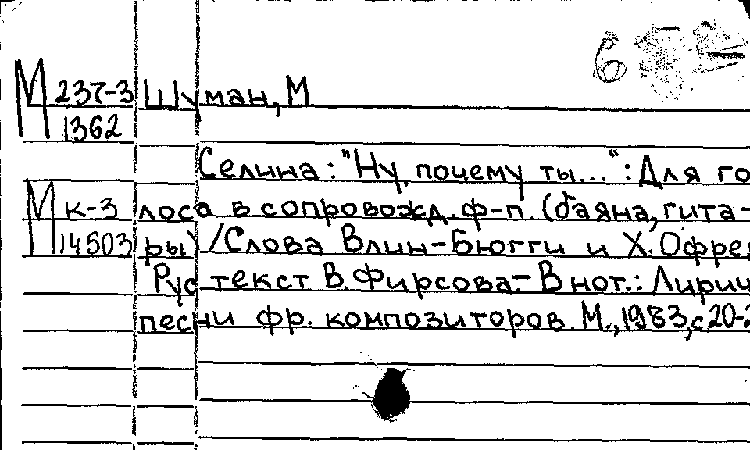 6
М 237-3 Шуман, М
1362
Селина: "Ну, почему ты...": Для го
М к-3 лоса в сопровожд. ф-п. (баяна, гита-
14503 ры) /Слова Влин-Бюгги и Х. Офре
Рус текст В. Фирсова- В нот.: Лирич
песни фр. композиторов. М., 1983, с 20-2